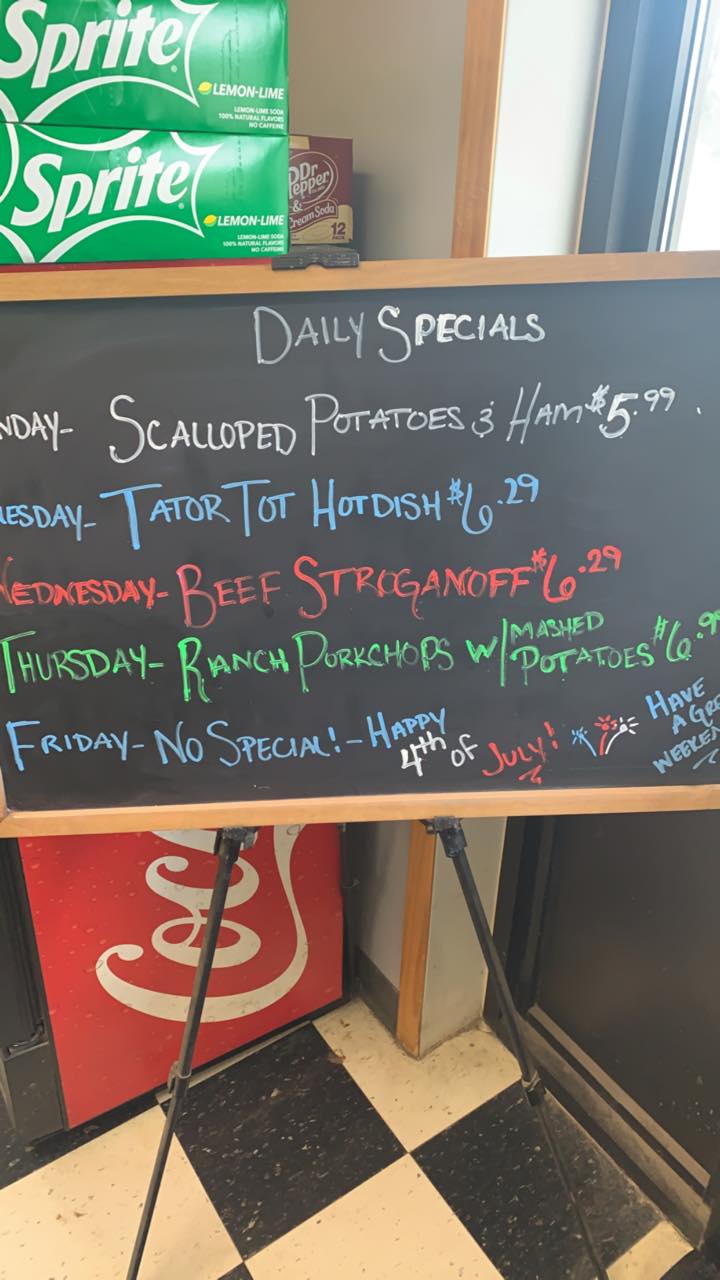 Sprite
LEMON-LIME
LEMON-LIME SODA
100% NATURAL FLAVORS
NO CAFFEINE
Sprite
LEMON-LIME
LEMON-LIME SODA
100% NATURAL FLAVORS
NO CAFFEINE
Dr Pepper
& Cream Soda
12
DAILY SPECIALS
NDAY- SCALLOPED POTATOES & HAM $5.99
ESDAY- TATOR TOT HOTDISH $6.29
WEDNESDAY- BEEF STROGANOFF $6.29
THURSDAY- RANCH PORKCHOPS W/ MASHED POTATOES $6.9
FRIDAY- NO SPECIAL! - HAPPY 4th OF JULY!
HAVE
A GRE
WEEKEN